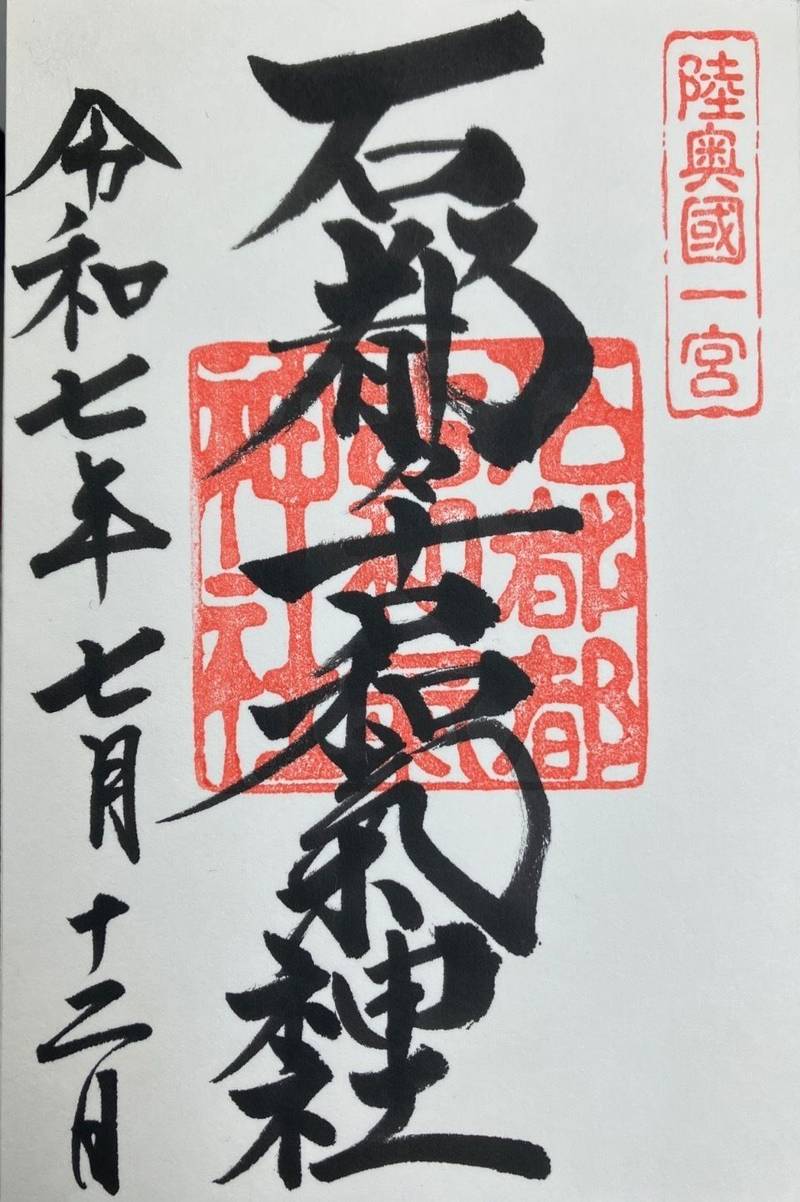 陸奥國一宮
石都々古和氣神社
石都都古和氣神社
令和七年七月十二日